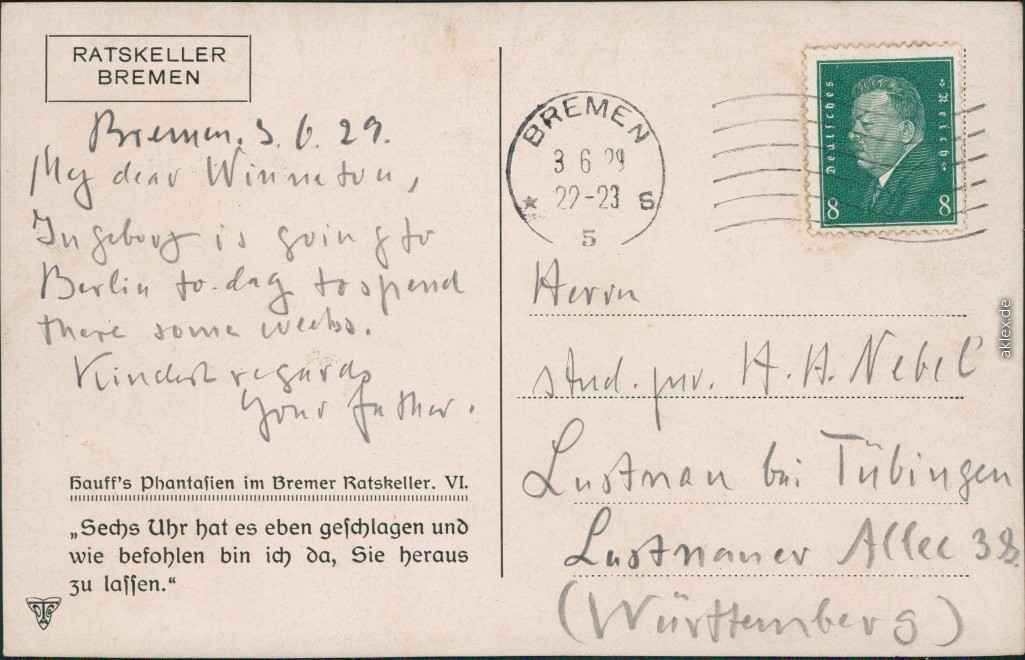 RATSKELLER
BREMEN
Bremen. 3. 6. 29.
My dear Winnetou,
Ingeborg is going to
Berlin to-day to spend
there some weeks.
Kindest regards
Your father.
Hauff's Phantaſien im Bremer Ratskeller. VI.
„Sechs Uhr hat es eben geſchlagen und
wie befohlen bin ich da, Sie heraus
zu laſſen.“
BREMEN
3 6 29
22-23 S
5
Deutsches Reich
8 8
Herrn
stud. jur. H. H. Nebel
Lustnau bei Tübingen
Lustnauer Allee 38.
(Württemberg)
aklex.de